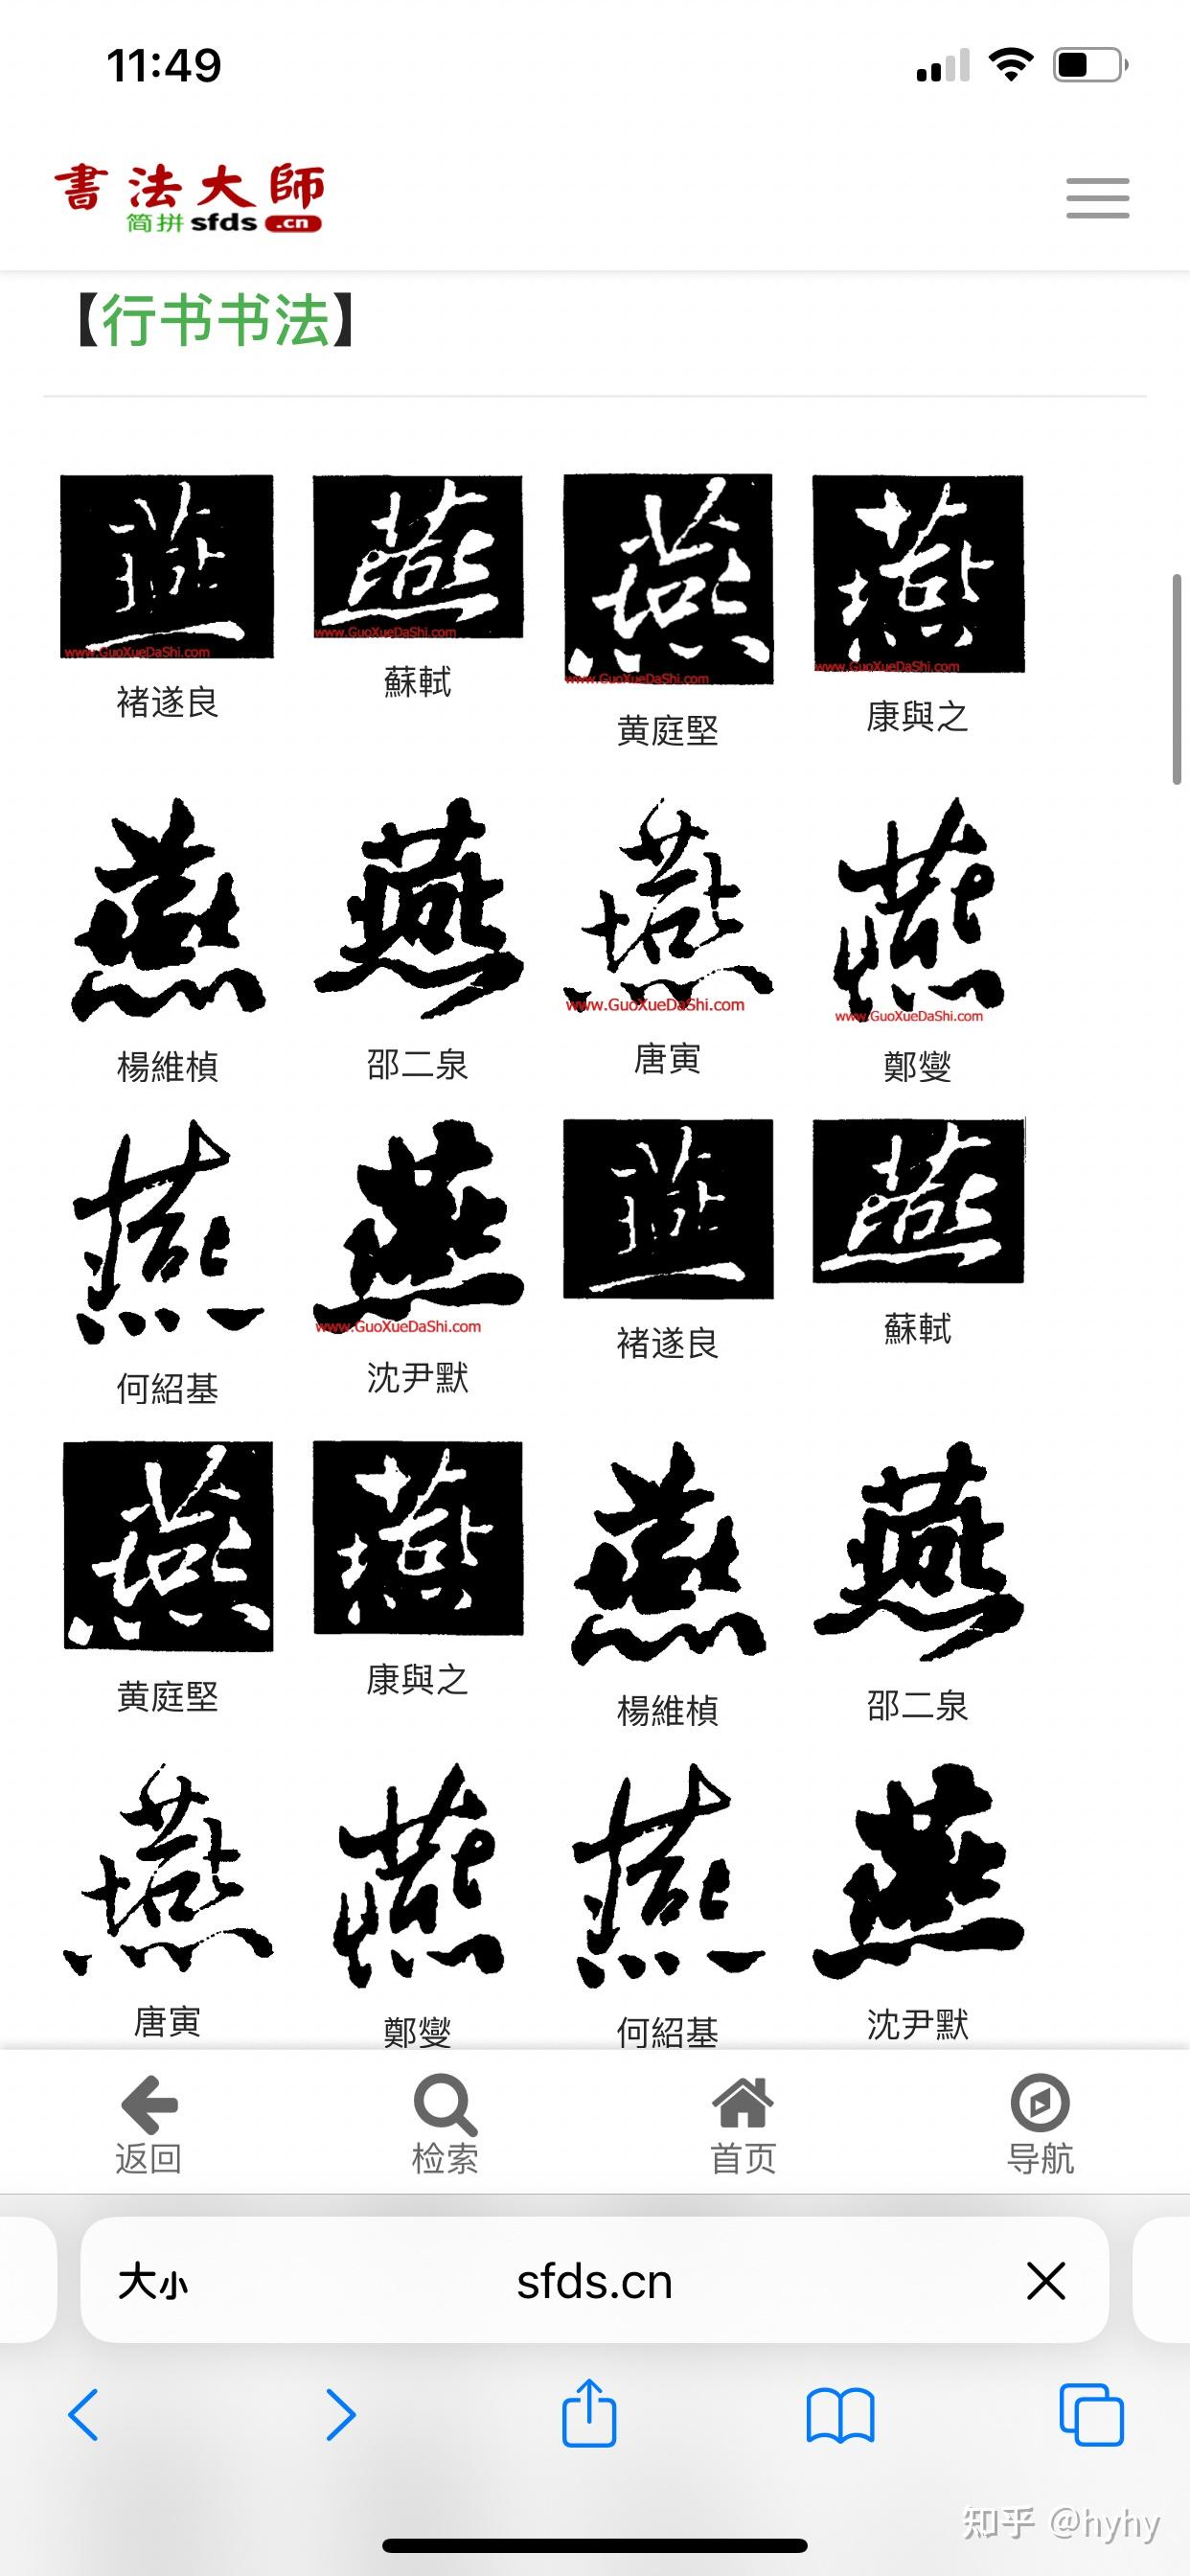 11:49
書法大師
简拼 sfds .cn
【行书书法】
燕 燕 燕 燕
www.GuoXueDaShi.com www.GuoXueDaShi.com www.GuoXueDaShi.com www.GuoXueDaShi.com
褚遂良 蘇軾 黄庭堅 康與之
燕 燕 燕 燕
www.GuoXueDaShi.com www.GuoXueDaShi.com
楊維楨 邵二泉 唐寅 鄭燮
燕 燕 燕 燕
www.GuoXueDaShi.com
何紹基 沈尹默 褚遂良 蘇軾
燕 燕 燕 燕
黄庭堅 康與之 楊維楨 邵二泉
燕 燕 燕 燕
唐寅 鄭燮 何紹基 沈尹默
返回 检索 首页 导航
大小 sfds.cn
知乎 @hyhy